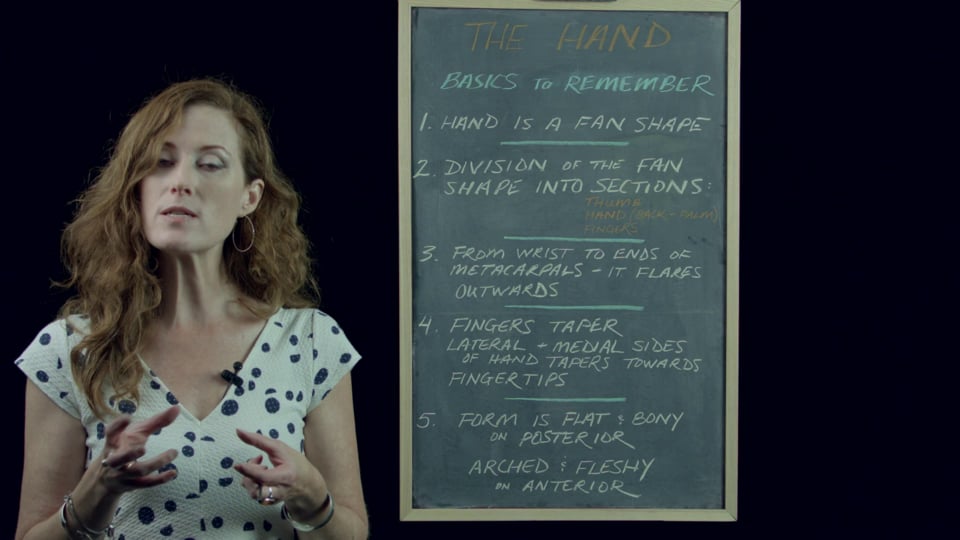 THE HAND
BASICS to REMEMBER
1. HAND IS A FAN SHAPE
2. DIVISION OF THE FAN
SHAPE INTO SECTIONS:
THUMB
HAND (BACK - PALM)
FINGERS
3. FROM WRIST TO ENDS OF
METACARPALS - IT FLARES
OUTWARDS
4. FINGERS TAPER
LATERAL + MEDIAL SIDES
OF HAND TAPERS TOWARDS
FINGERTIPS
5. FORM IS FLAT & BONY
ON POSTERIOR
ARCHED & FLESHY
ON ANTERIOR